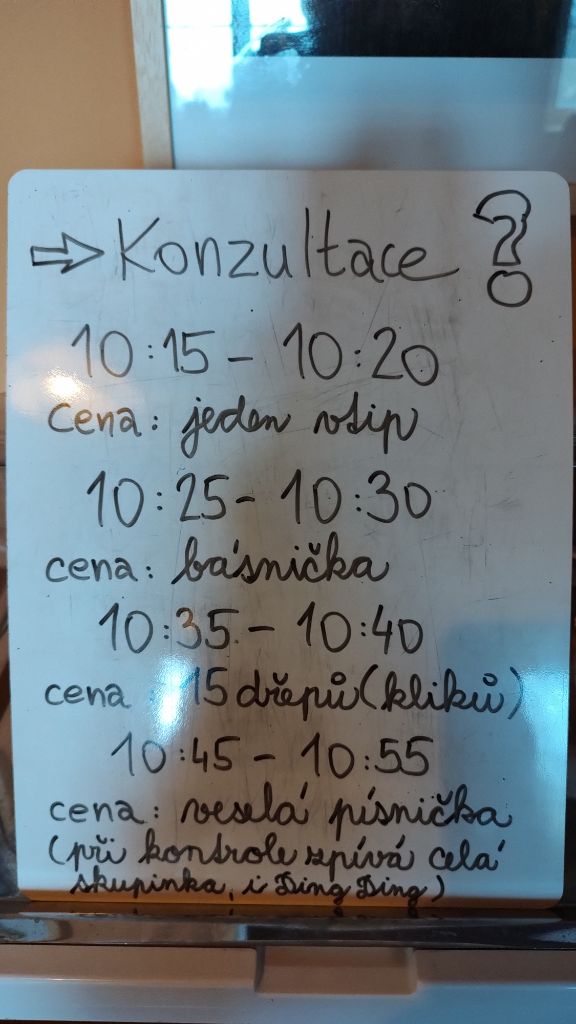 ⇒ Konzultace ?
10:15 - 10:20
cena: jeden vtip
10:25 - 10:30
cena: básnička
10:35 - 10:40
cena: 15 dřepů (kliků)
10:45 - 10:55
cena: veselá písnička
(při kontrole zpívá celá
skupinka, i Ding Ding)